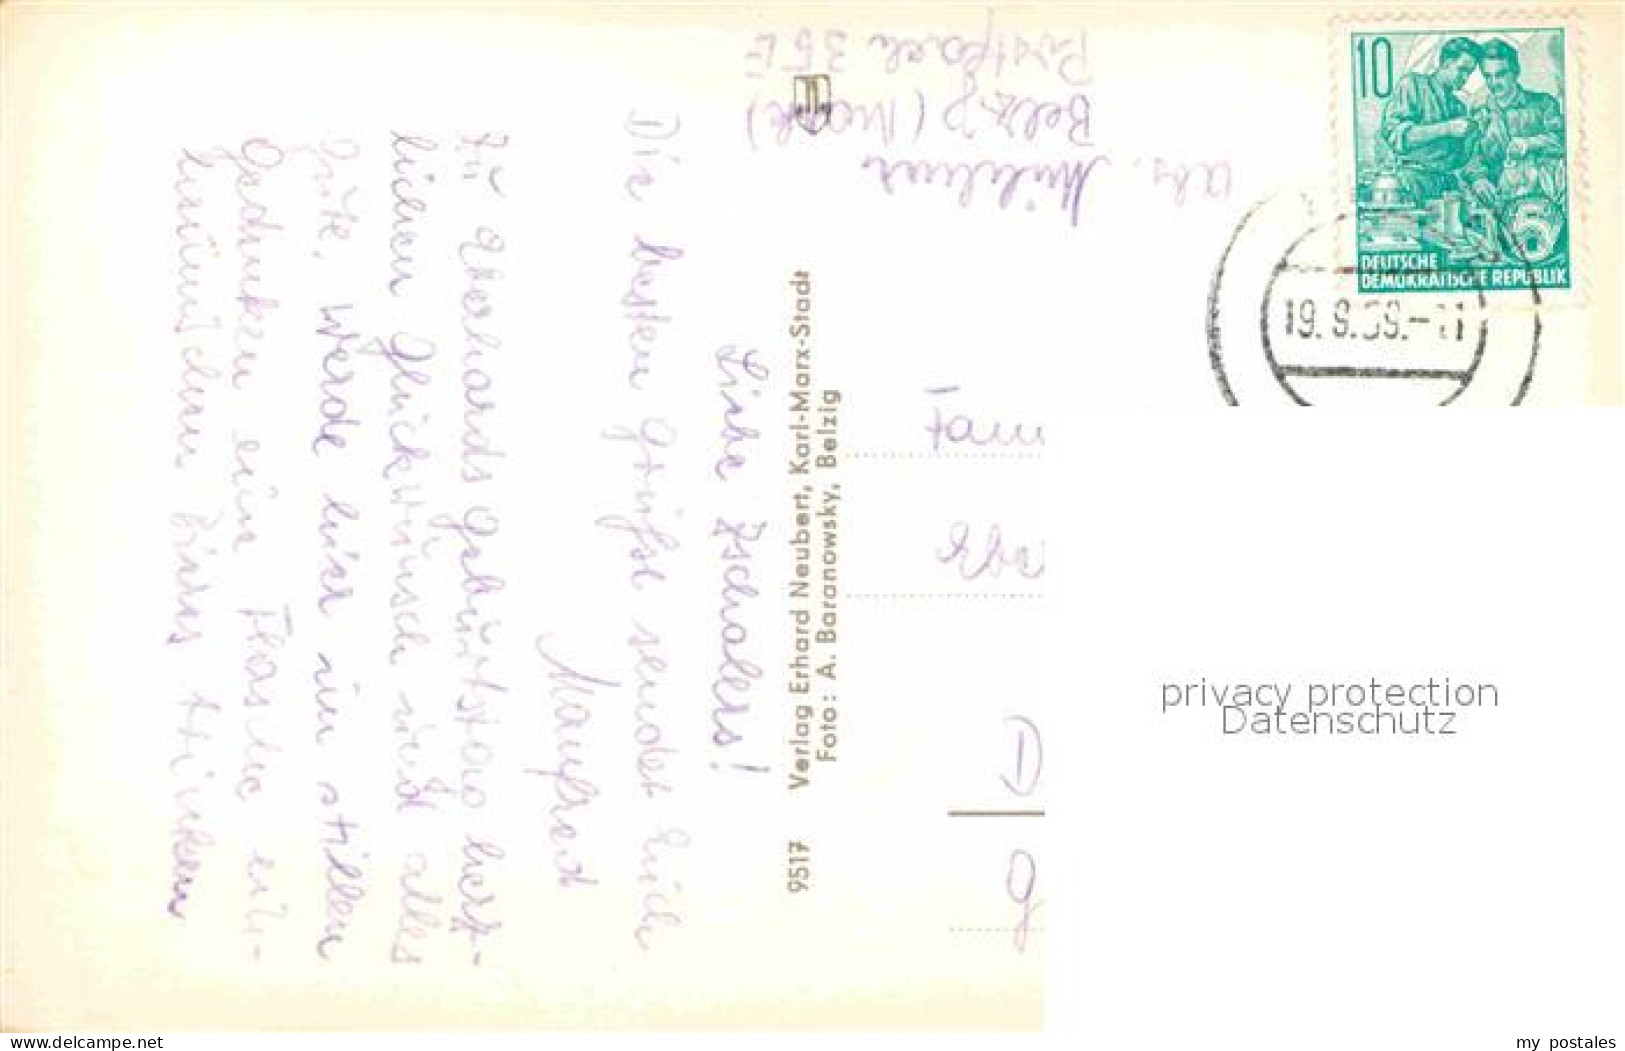 Liebe Zschalers!
Die besten Grüße sendet Euch
Manfred
Zu Eberhards Geburtstag herz-
lichen Glückwunsch und alles
Gute. Werde hier im stillen
Gedenken eine Flasche ein-
heimischen Bieres trinken
Abs.
Belzig (Mark)
Postfach 35
9517 Verlag Erhard Neubert, Karl-Marx-Stadt
Foto: A. Baranowsky, Belzig
10
5
DEUTSCHE
DEMOKRATISCHE REPUBLIK
19.9.59.-11
Fam
privacy protection
Datenschutz
oldthing.de
my postales